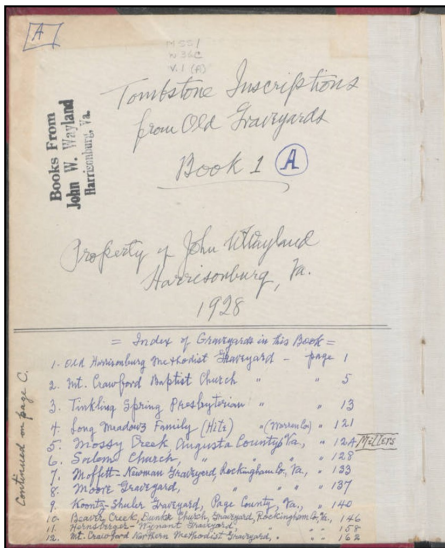 A
M551
W36C
V.1 (A)
Books From
John W. Wayland
Harrisonburg, Va.
Tombstone Inscriptions
from Old Graveyards
Book 1 A
Property of John W Wayland
Harrisonburg, Va.
1928
= Index of Graveyards in this Book =
1. Old Harrisonburg Methodist Graveyard - page 1
2. Mt. Crawford Baptist Church " " 5
3. Tinkling Spring Presbyterian " " 13
4. Long Meadows Family (Hite) " " 121
5. Mossy Creek, Augusta County, Va., " 12A
6. Salems Church, " " 128
7. Moffett-Newman Graveyard, Rockingham Co, Va, " 133
8. Moore Graveyard, " " " 137
9. Koontz-Shuler Graveyard, Page County, Va., " 140
10. Beaver Creek, Dunker Church, Graveyard, Rockingham Co, Va, " 146
11. Hornsberger - Graveyard, " " 158
12. Mt. Crawford Northern Methodist Graveyard, " " 162
Continued on page C.